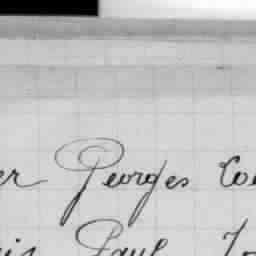 er Georges Co
is Paul